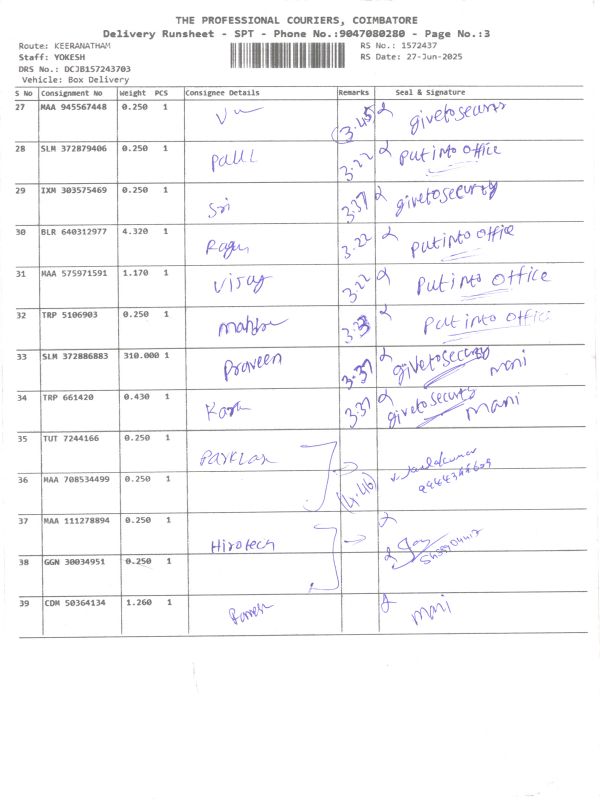 THE PROFESSIONAL COURIERS, COIMBATORE
Delivery Runsheet - SPT - Phone No.:9047080280 - Page No.:3
Route: KEERANATHAM RS No.: 1572437
Staff: YOKESH RS Date: 27-Jun-2025
DRS No.: DCJB157243703
Vehicle: Box Delivery
S No Consignment No Weight PCS Consignee Details Remarks Seal & Signature
27 MAA 945567448 0.250 1 3.45 givetosecurity
28 SLM 372879406 0.250 1 paul 3.22 Put into Office
29 IXM 303575469 0.250 1 Sri 3.37 givetosecurity
30 BLR 640312977 4.320 1 3.22 Put into office
31 MAA 575971591 1.170 1 3.22 Put into office
32 TRP 5106903 0.250 1 Put into office
33 SLM 372886883 310.000 1 Praveen 3.37 givetosecurity mani
34 TRP 661420 0.430 1 3.37 givetosecurity mani
35 TUT 7244166 0.250 1
36 MAA 708534499 0.250 1 4.46
37 MAA 111278894 0.250 1 Hirotech
38 GGN 30034951 0.250 1
39 CDM 50364134 1.260 1 mani